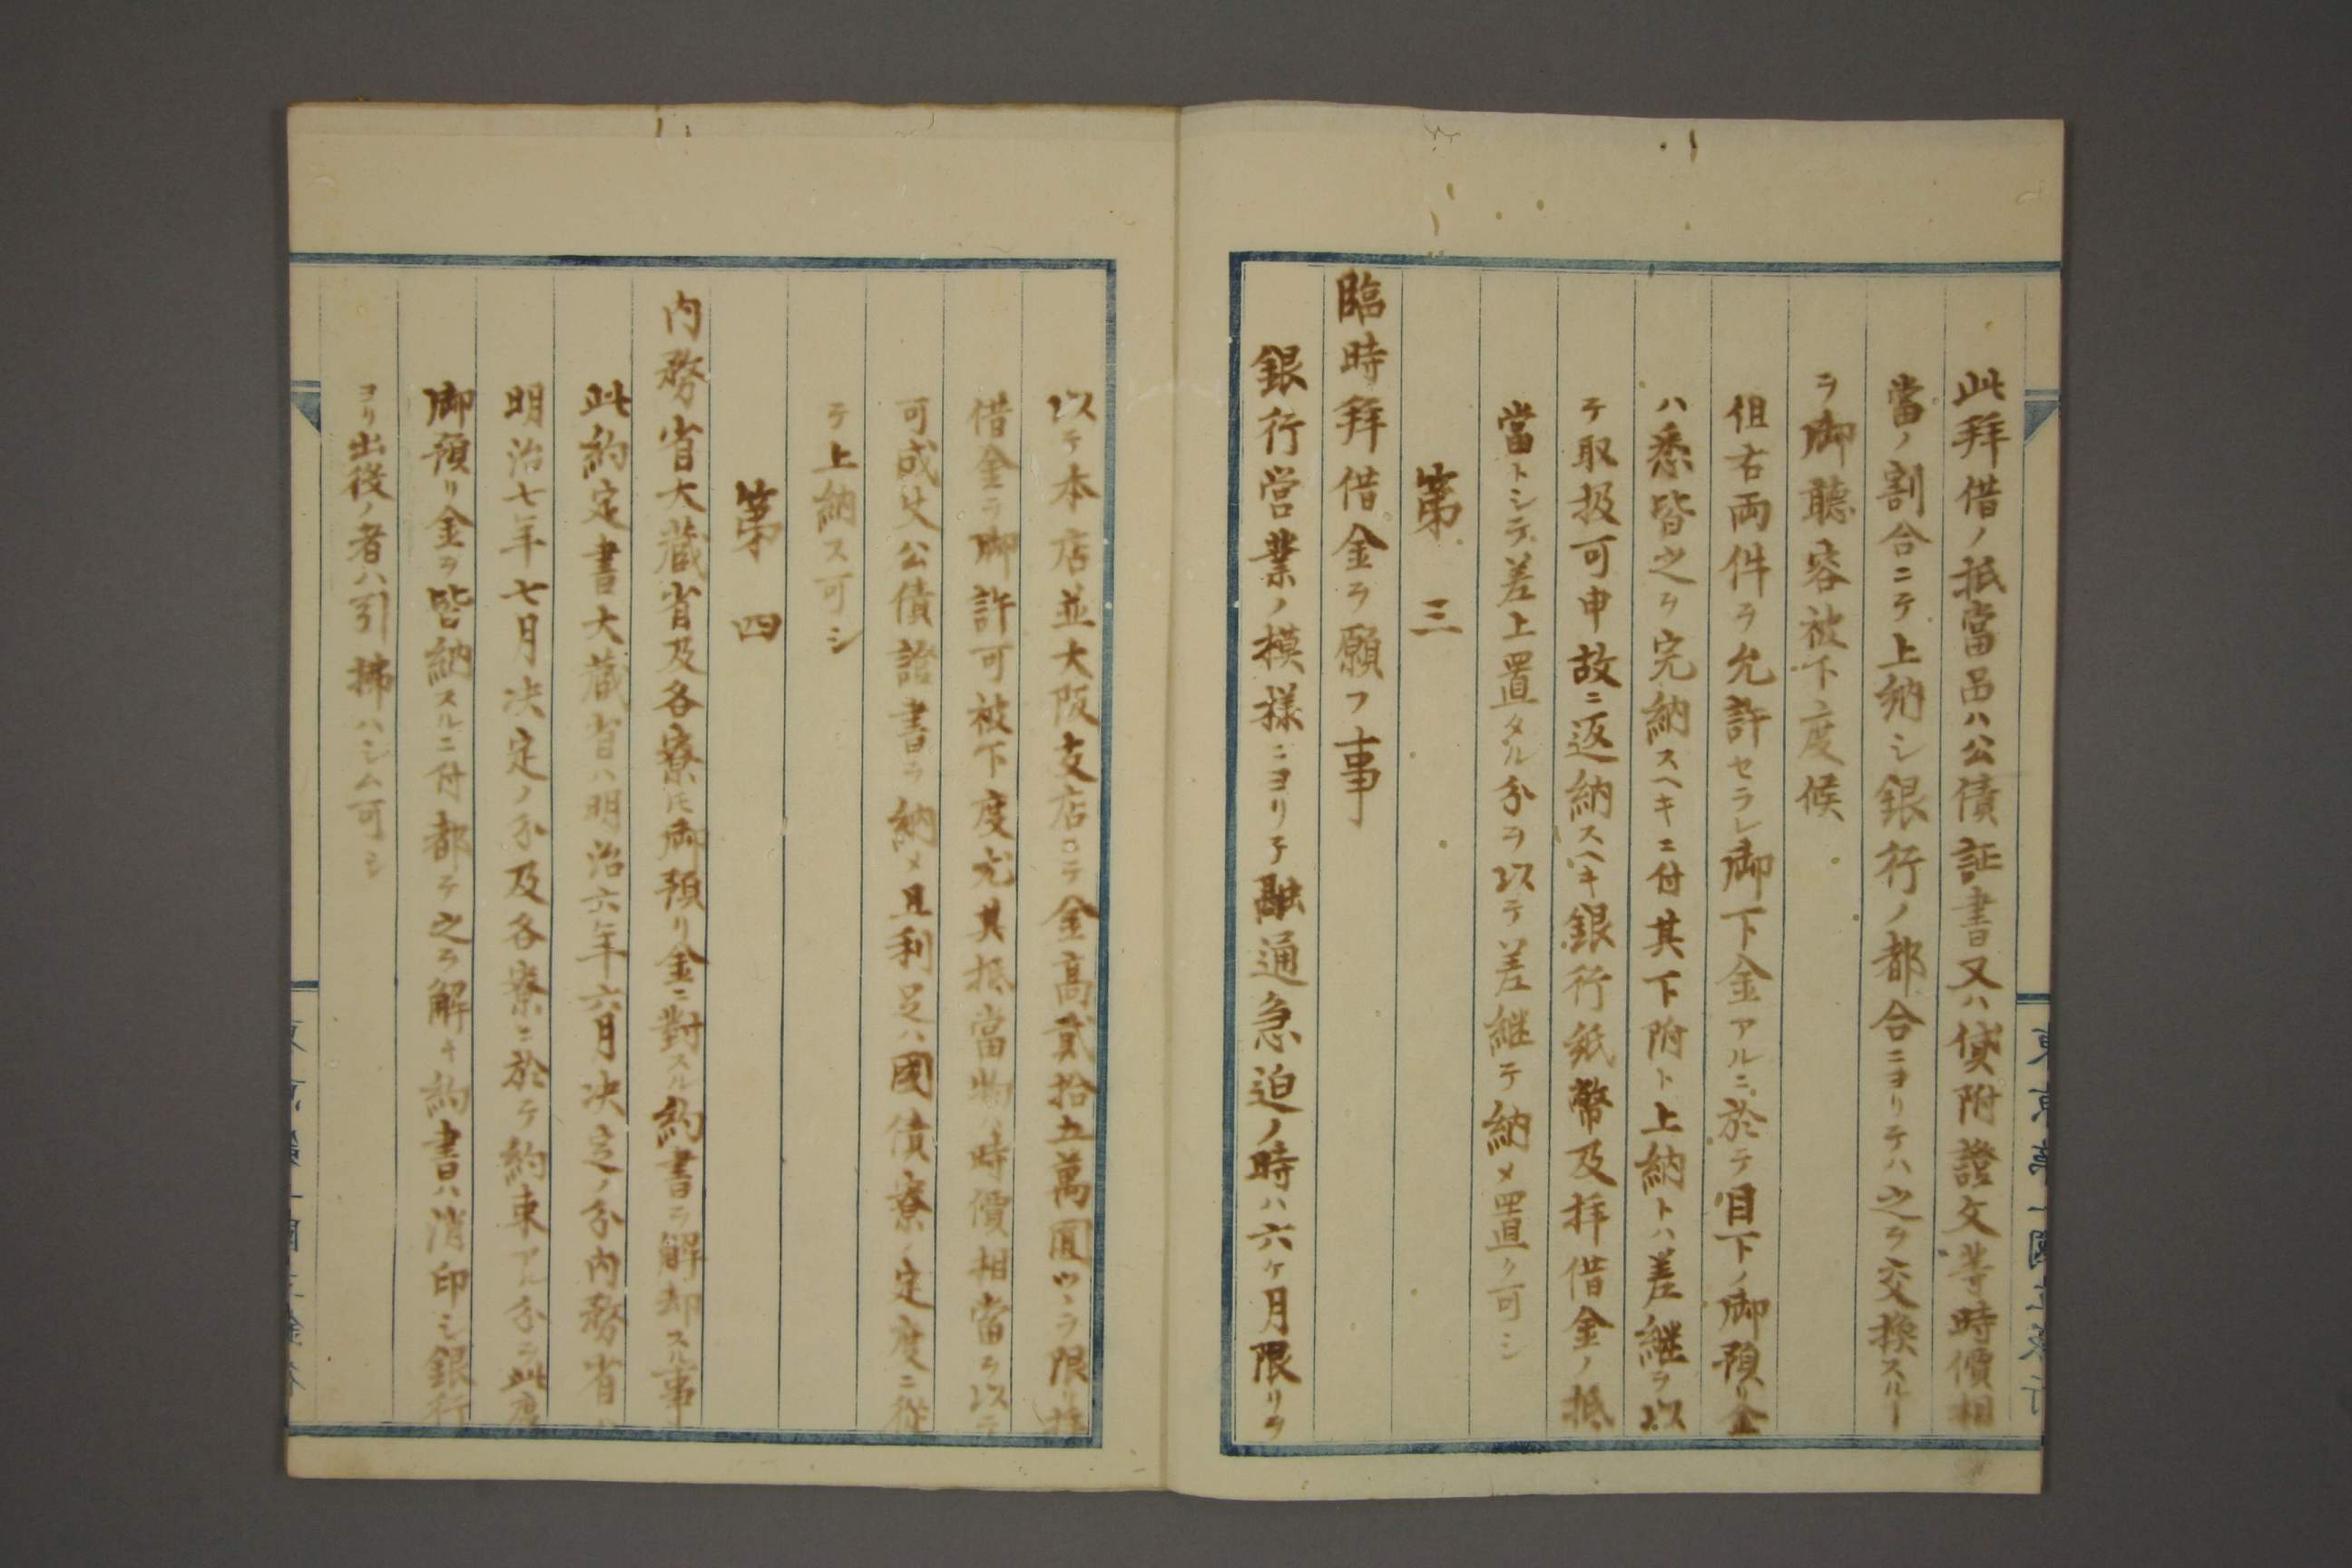 此拜借ノ抵當品ハ公債証書又ハ貸附證文等時價相
當ノ割合ニテ上納シ銀行ノ都合ニヨリテハ之ヲ交換スルー
ヲ御聽容被下度候
但右両件ヲ允許セラレ御下金アルニ於テ目下ノ御預リ金
ハ悉皆之ヲ完納スヘキニ付其下附ト上納トハ差継ヲ以
テ取扱可申故ニ返納スヘキ銀行紙幣及拝借金ノ抵
當トシテ差上置タル分ヲ以テ差継テ納メ置ク可シ
第三
臨時拜借金ヲ願フ事
銀行営業ノ模様ニヨリテ融通急迫ノ時ハ六ヶ月限リヲ
以テ本店並大阪支店ニテ金高貳拾五萬圓ツヽヲ限リ拝
借金ヲ御許可被下度尤其抵當物ハ時價相當ヲ以テ
可成丈公債證書ヲ納メ且利足ハ國債寮ノ定度ニ従
テ上納ス可シ
第四
内務省大蔵省及各寮庁御預リ金ニ對スル約書ヲ解却スル事
此約定書大蔵省ハ明治六年六月决定ノ分内務省ハ
明治七年七月决定ノ分及各寮ニ於テ約束アル分ヲ此度
御預リ金ヲ皆納スルニ付都テ之ヲ解キ約書ハ消印シ銀行
ヨリ出役ノ者ハ引拂ハシム可シ
東京第一國立銀行